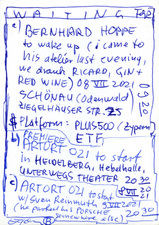 WAITING
a) BERNHARD HOPPE
to wake up (i came to
his atelier last evening,
we drank RICARD, GIN +
RED WINE) 08 VII 2021
SCHÖNAU (Odenwald)
ZIEGELHAUSER STR. 25
09 20
$ Platform: PLUS500 (Zypern)
ETF
b) PREMIERE
ARTORT 021 to start
in HEIDELBERG, Hebelhalle,
UNTERWEGS THEATER 20 30
c) ARTORT 021 to start
8 VII 2021
w/ Sven Reinmuth
(he parked his PORSCHE
somewhere else)
20 30